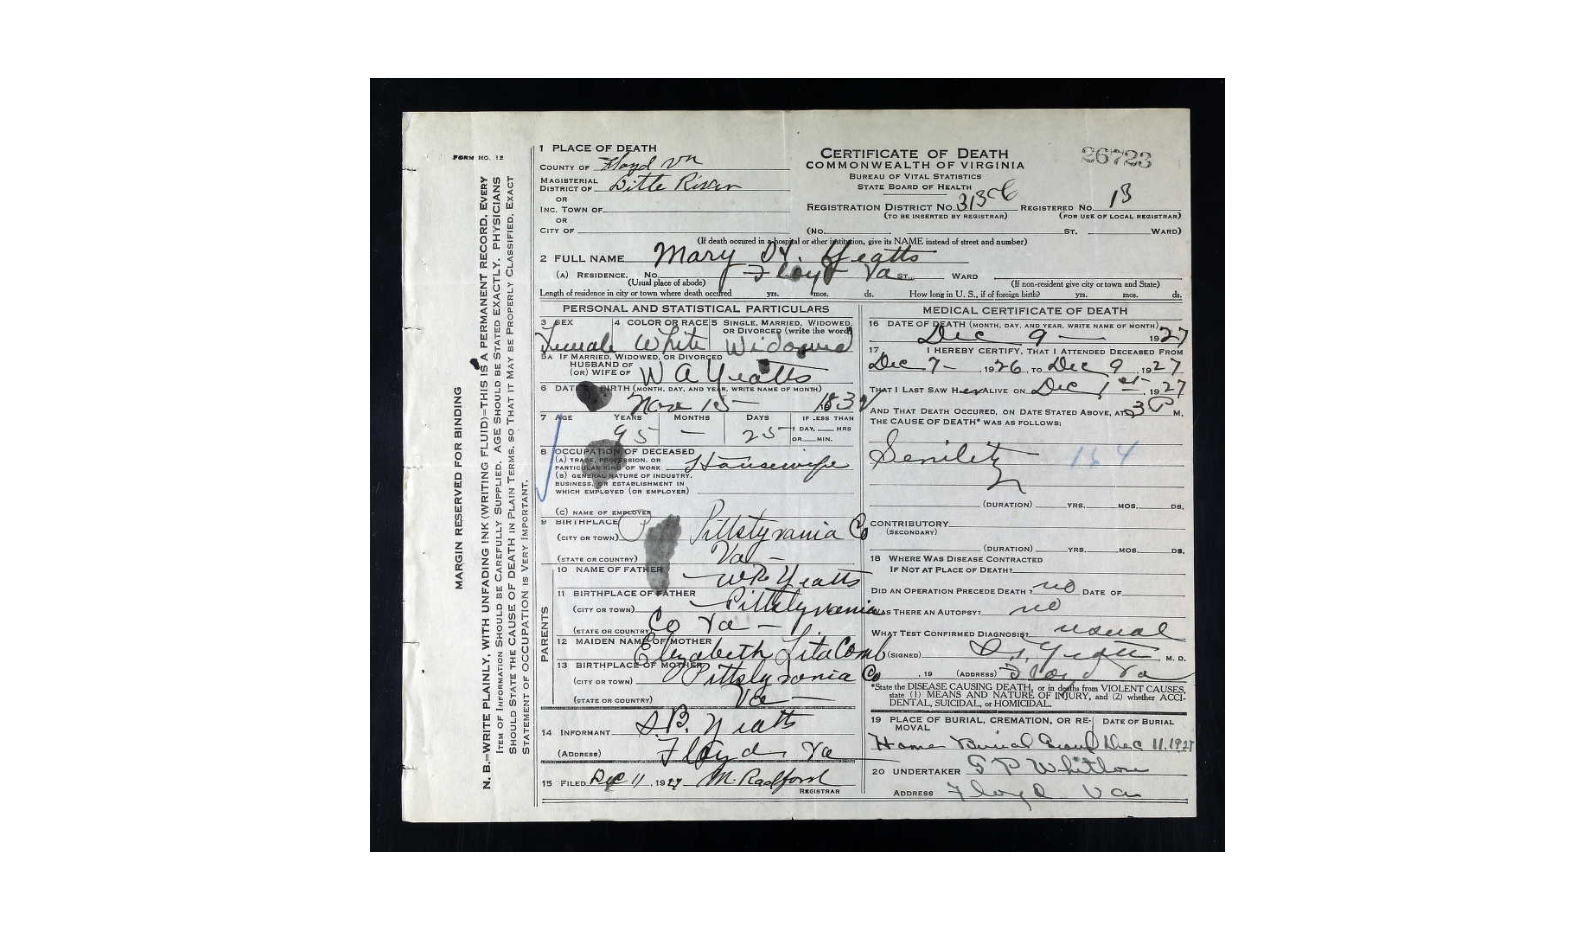 FORM NO. 12
MARGIN RESERVED FOR BINDING
N. B.—WRITE PLAINLY, WITH UNFADING INK (WRITING FLUID)—THIS IS A PERMANENT RECORD. EVERY
ITEM OF INFORMATION SHOULD BE CAREFULLY SUPPLIED. AGE SHOULD BE STATED EXACTLY. PHYSICIANS
SHOULD STATE THE CAUSE OF DEATH IN PLAIN TERMS, SO THAT IT MAY BE PROPERLY CLASSIFIED. EXACT
STATEMENT OF OCCUPATION IS VERY IMPORTANT.
1 PLACE OF DEATH
COUNTY OF Floyd Va
MAGISTERIAL
DISTRICT OF Little River
OR
INC. TOWN OF
OR
CITY OF
CERTIFICATE OF DEATH
COMMONWEALTH OF VIRGINIA
BUREAU OF VITAL STATISTICS
STATE BOARD OF HEALTH
26723
REGISTRATION DISTRICT NO. REGISTERED NO. 13
(TO BE INSERTED BY REGISTRAR) (FOR USE OF LOCAL REGISTRAR)
(NO. ST. WARD)
(If death occured in a hospital or other institution, give its NAME instead of street and number)
2 FULL NAME Mary Yeatts
(A) RESIDENCE. No. Floyd Va ST. WARD
(Usual place of abode) (If non-resident give city or town and State)
Length of residence in city or town where death occured yrs. mos. ds. How long in U. S., if of foreign birth? yrs. mos. ds.
PERSONAL AND STATISTICAL PARTICULARS
3 SEX 4 COLOR OR RACE 5 SINGLE, MARRIED, WIDOWED,
OR DIVORCED (write the word)
Female White Widowed
5A IF MARRIED, WIDOWED, OR DIVORCED
HUSBAND OF
(OR) WIFE OF W A Yeatts
6 DATE OF BIRTH (MONTH, DAY, AND YEAR, WRITE NAME OF MONTH)
Nov 15 — 1832
7 AGE YEARS MONTHS DAYS IF LESS THAN
95 — 25 1 DAY, HRS
OR MIN.
8 OCCUPATION OF DECEASED
(A) TRADE, PROFESSION, OR
PARTICULAR KIND OF WORK Housewife
(B) GENERAL NATURE OF INDUSTRY,
BUSINESS, OR ESTABLISHMENT IN
WHICH EMPLOYED (OR EMPLOYER)
(C) NAME OF EMPLOYER
9 BIRTHPLACE
(CITY OR TOWN) Pittslyvania Co
(STATE OR COUNTRY) Va —
PARENTS
10 NAME OF FATHER Yeatts
11 BIRTHPLACE OF FATHER
(CITY OR TOWN) Pittslyvania
(STATE OR COUNTRY) Co Va —
12 MAIDEN NAME OF MOTHER
Elizabeth LitaComb
13 BIRTHPLACE OF MOTHER
(CITY OR TOWN) Pittslyvania Co
(STATE OR COUNTRY) Va —
14 INFORMANT S.B. Yeatts
(Address) Floyd, Va
15 FILED Dec 11, 1927 M. Radford
REGISTRAR
MEDICAL CERTIFICATE OF DEATH
16 DATE OF DEATH (MONTH, DAY, AND YEAR, WRITE NAME OF MONTH)
Dec 9 — 1927
17 I HEREBY CERTIFY, THAT I ATTENDED DECEASED FROM
Dec 7 — 1926, TO Dec 9, 1927
THAT I LAST SAW Her ALIVE ON Dec 1st, 1927
AND THAT DEATH OCCURED, ON DATE STATED ABOVE, AT 3 P M.
THE CAUSE OF DEATH* WAS AS FOLLOWS:
Senility 164
(DURATION) YRS. MOS. DS.
CONTRIBUTORY
(SECONDARY)
(DURATION) YRS. MOS. DS.
18 WHERE WAS DISEASE CONTRACTED
IF NOT AT PLACE OF DEATH?
DID AN OPERATION PRECEDE DEATH? no DATE OF
WAS THERE AN AUTOPSY? no
WHAT TEST CONFIRMED DIAGNOSIS? usual
(SIGNED) Yeatts M. D.
, 19 (ADDRESS) Floyd Va
*State the DISEASE CAUSING DEATH, or in deaths from VIOLENT CAUSES,
state (1) MEANS AND NATURE OF INJURY, and (2) whether ACCI-
DENTAL, SUICIDAL, or HOMICIDAL.
19 PLACE OF BURIAL, CREMATION, OR RE- DATE OF BURIAL
MOVAL
Home Burial Ground Dec 11, 1927
20 UNDERTAKER S P Whitlow
ADDRESS Floyd Va